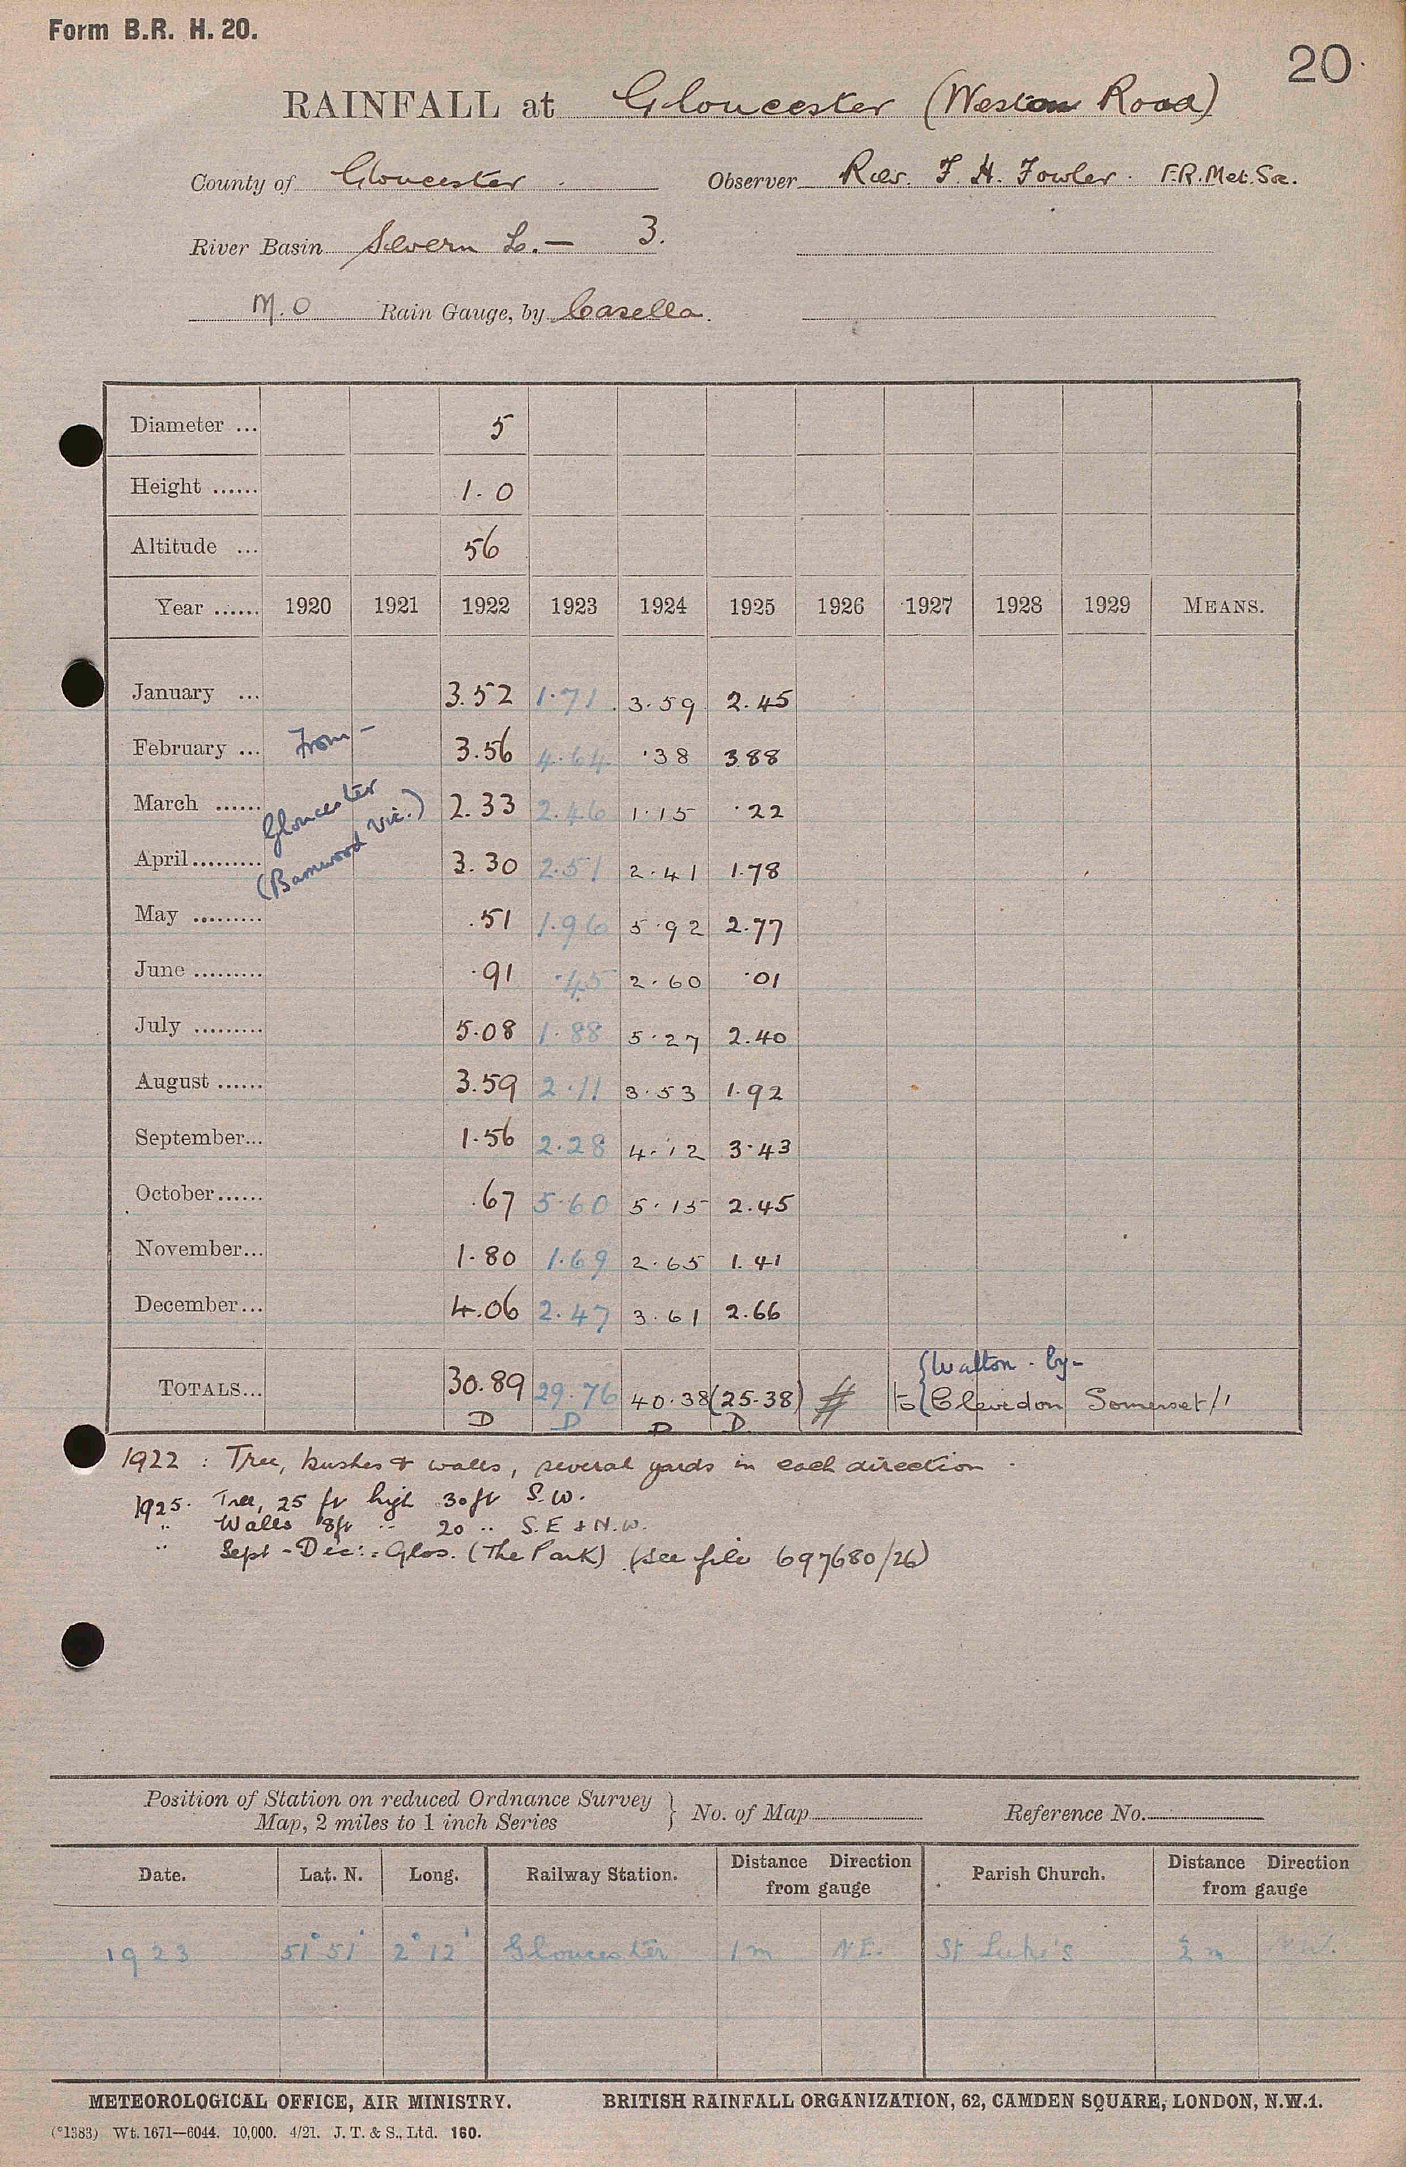 Form B.R. H. 20.
20
RAINFALL at Gloucester (Weston Road)
County of Gloucester Observer Rev. F. H. Fowler. F.R.Met.Soc.
River Basin Severn L. — 3.
M.O Rain Gauge, by Casella.
Diameter ... 5
Height ...... 1.0
Altitude ... 56
Year ...... 1920 1921 1922 1923 1924 1925 1926 1927 1928 1929 MEANS.
January ... 3.52 1.71 3.59 2.45
February ... From — 3.56 4.64 .38 3.88
March ...... Gloucester 2.33 2.46 1.15 .22
April......... (Barnwood Vic.) 3.30 2.51 2.41 1.78
May ......... .51 1.96 5.92 2.77
June ......... .91 .45 2.60 .01
July ......... 5.08 1.88 5.27 2.40
August ...... 3.59 2.11 3.53 1.92
September... 1.56 2.28 4.12 3.43
October...... .67 5.60 5.15 2.45
November... 1.80 1.69 2.65 1.41
December... 4.06 2.47 3.61 2.66
{Walton-by-
TOTALS... 30.89 29.76 40.38 (25.38) # to {Clevedon Somerset//
D D D D.
1922 : Tree, bushes & walls, several yards in each direction.
1925. Tree, 25 ft high 30 ft S.W.
" Walls 8ft " 20 " S.E & N.W.
" Sept - Dec: = Glos. (The Park) (see file 697680/26)
Position of Station on reduced Ordnance Survey
Map, 2 miles to 1 inch Series } No. of Map Reference No.
Date. Lat. N. Long. Railway Station. Distance Direction from gauge Parish Church. Distance Direction from gauge
1923 51° 51' 2° 12' Gloucester 1 m N.E. St Luke's ½ m N.W.
METEOROLOGICAL OFFICE, AIR MINISTRY. BRITISH RAINFALL ORGANIZATION, 62, CAMDEN SQUARE, LONDON, N.W.1.
(*1383) Wt. 1671—6044. 10,000. 4/21. J. T. & S., Ltd. 160.